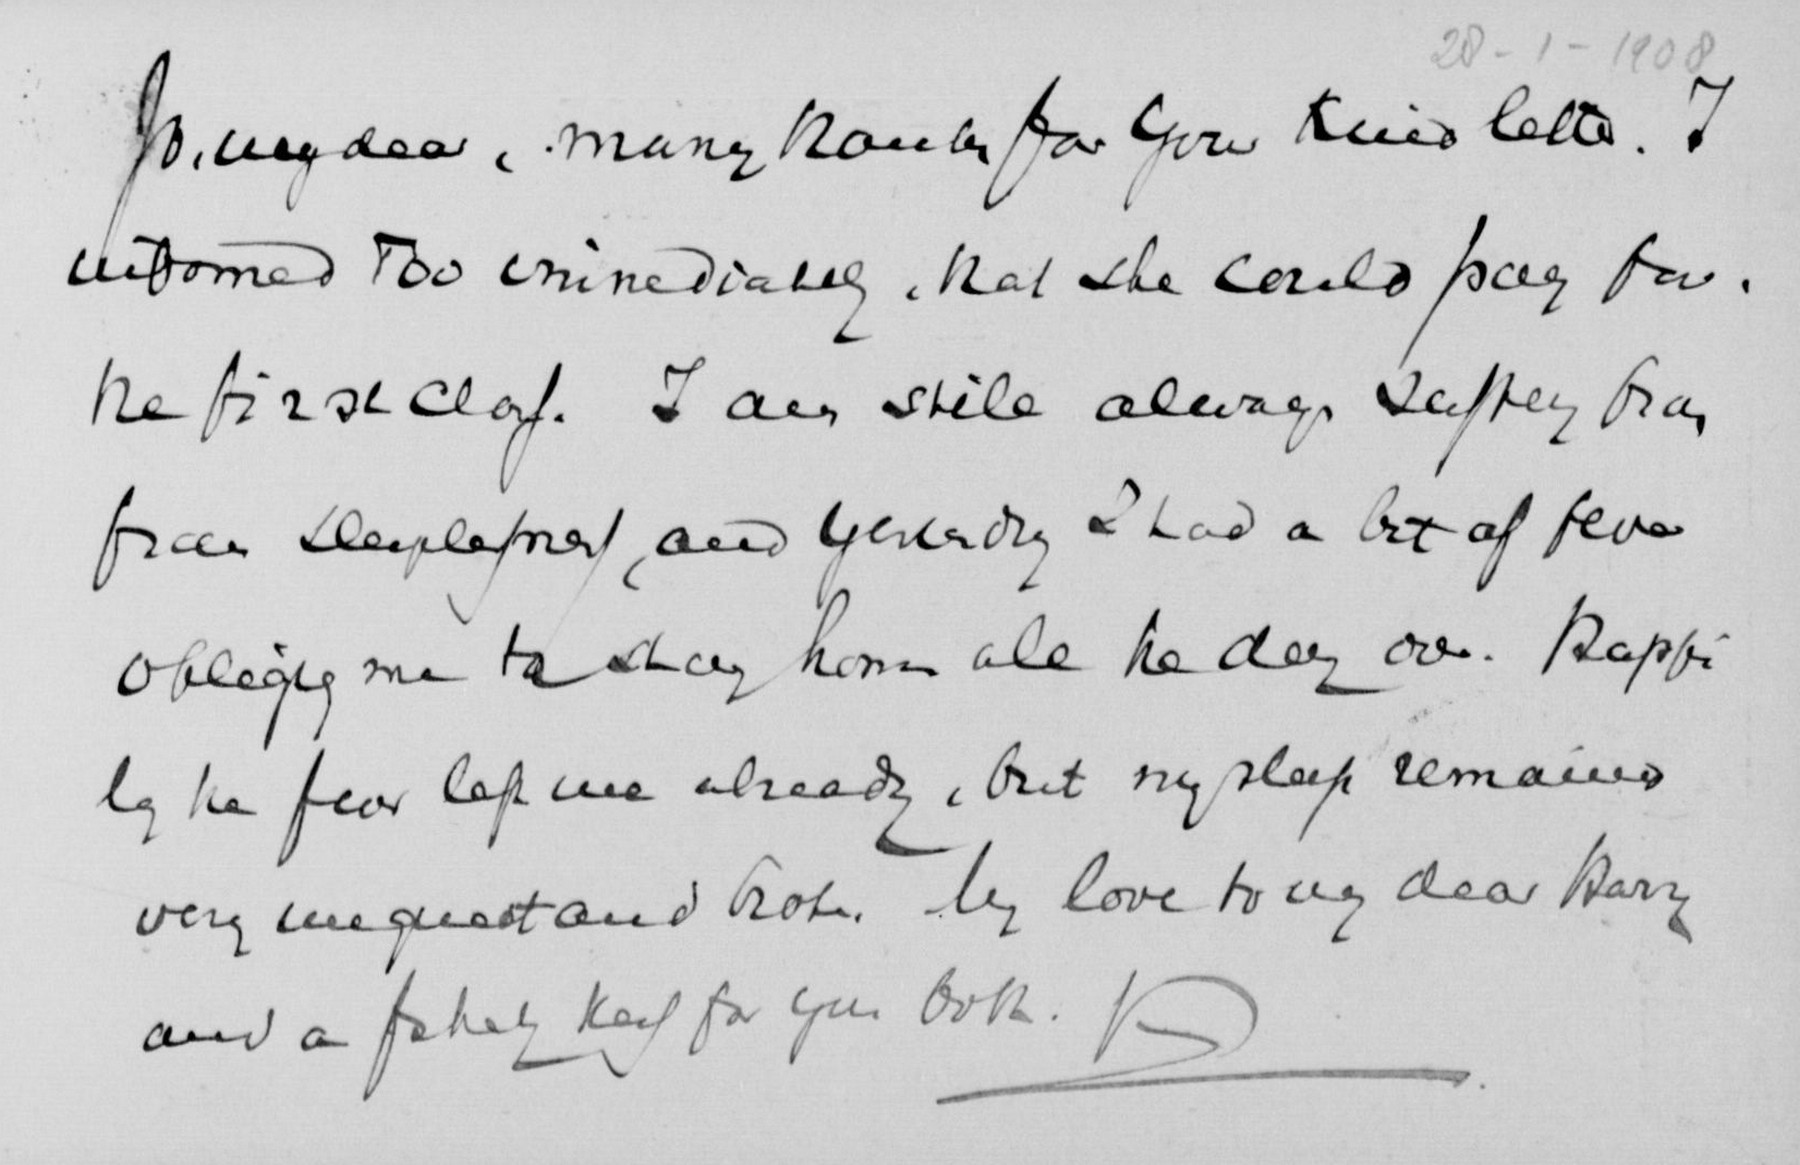 28-1-1908
Jo, my dear, many thanks for your kind letter. I
informed Too immediately, that she could pay for
the first class. I am still always suffering from
from sleeplessness, and yesterday I had a bit of fever
obliging me to stay home all the day over. Happi
ly the fever left me already, but my sleep remains
very unquiet and broken. My love to my dear Harry
and a fatherly kiss for you both.